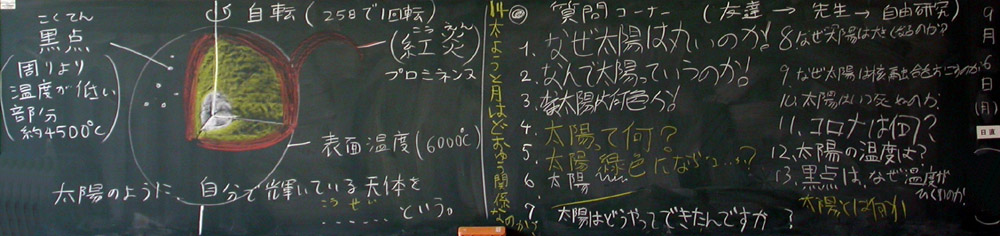 自転(25日で1回転)
こくてん
黒点
(周りより
温度が低い
部分
約4500℃)
こうえん
(紅炎)
プロミネンス
表面温度(6000℃)
太陽のように、自分で輝いている天体を
こうせい
………という。
14 太ようと月はどおゆう関係なのか
◎ 質問コーナー (友達→先生→自由研究)
1. なぜ太陽は丸いのか!
2. なんで太陽っていうのか!
3. 太陽
4. 太陽って何?
5. 太陽緑色にならない…か?
6. 太陽
7. 太陽はどうやってできたんですか?
8. なぜ太陽は
9. なぜ太陽は核融合
10. 太陽はいつ
11. コロナは何?
12. 太陽の温度は?
13. 黒点は、なぜ温度が
ひくいのか
太陽とは何か
9月6日(月)
日直